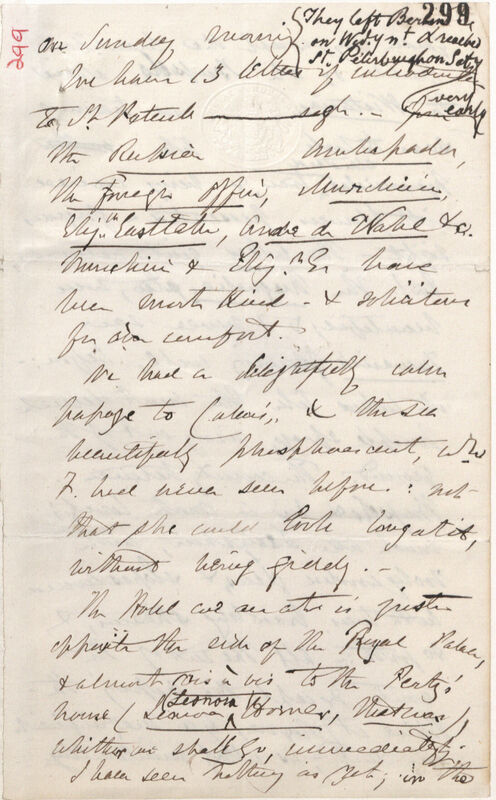 299
299
on Sunday morng (They left Berlin
on Wedy nt & reached
St. Petersburgh on Saty
(very early)
We have 13 letters of introduction
to St Petersb———gh. —
the Russian Ambassador,
the Foreign Office, Murchison,
Elizth. Eastlake, & &c.
Murchison & Elizth. E. have
been most kind - & solicitous
for our comfort.
We had a delightfully calm
passage to Calais, & the sea
beautifully phosphorescent, wh
F. had never seen before: not
that she could look long at it,
without being giddy. —
The Hotel we are at is just
opposite the side of the Royal Palace,
& almost vis à vis to the Pertz's
house (Leonora Leonora Horner, that was)
whither we shall go, immediately.
I have seen nothing as yet, in the